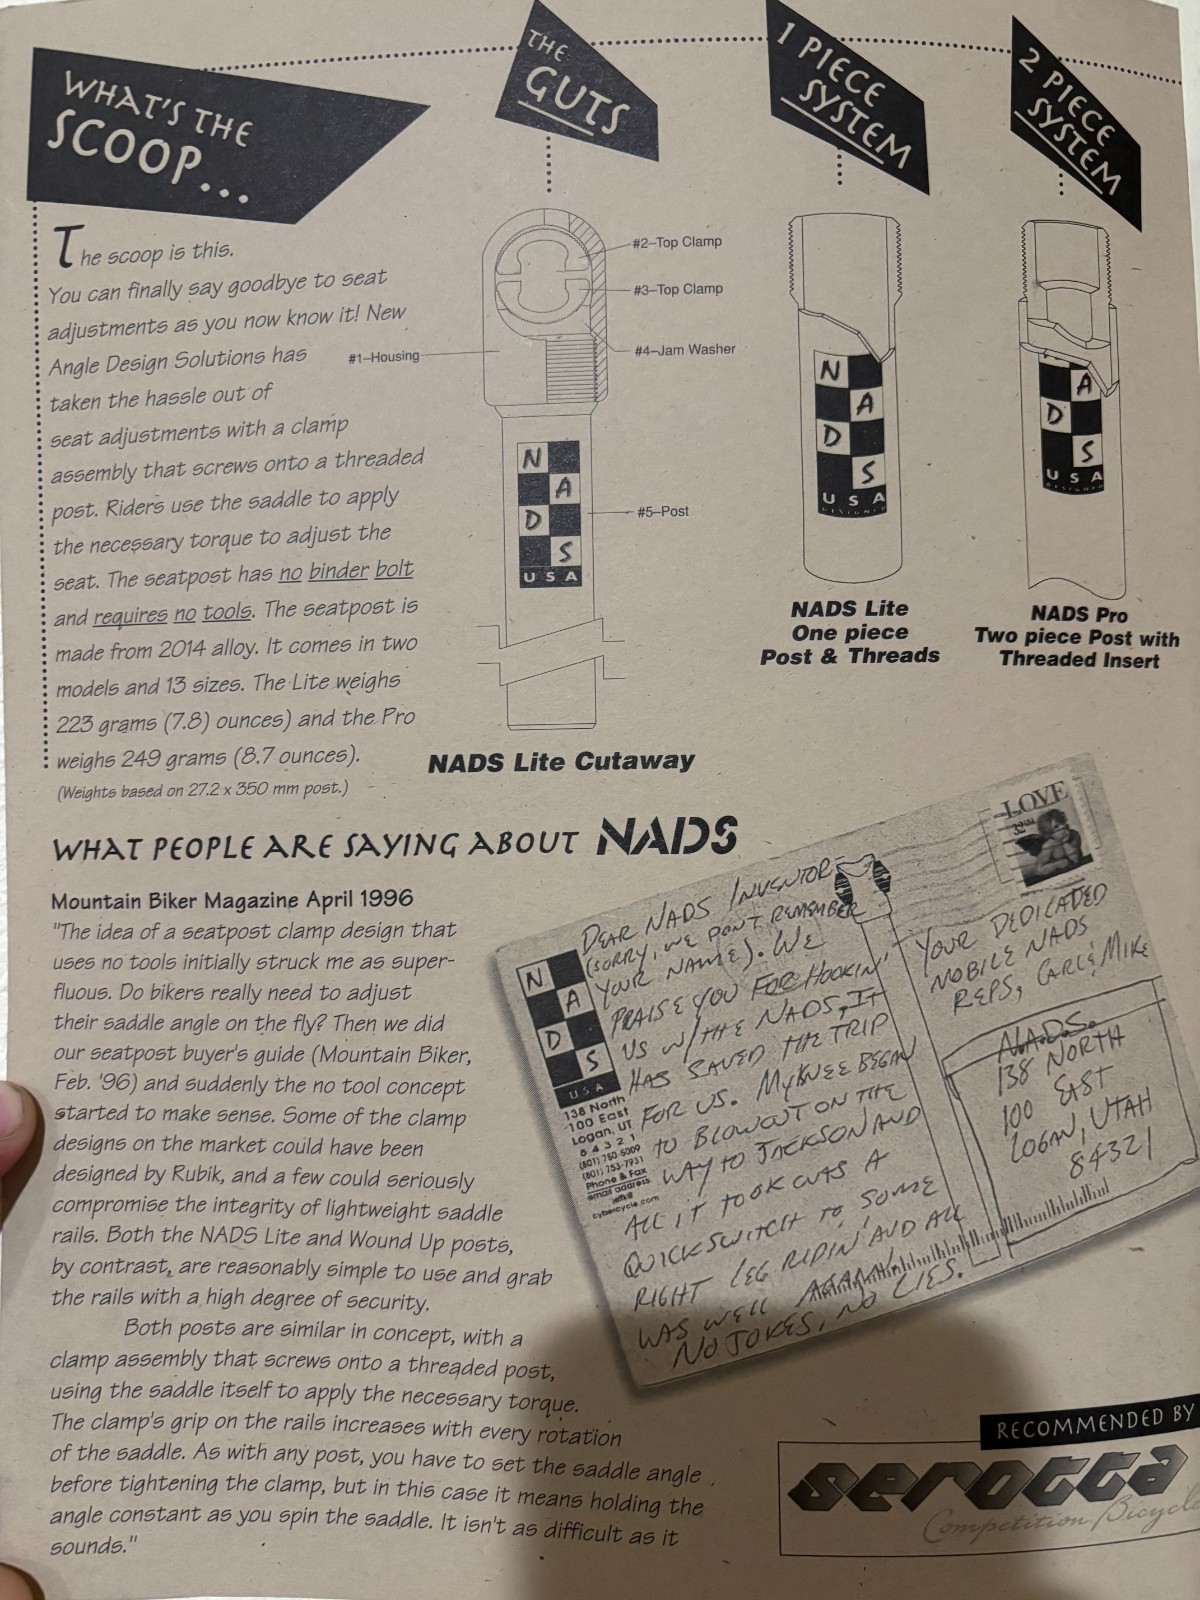 WHAT'S THE
SCOOP...
The scoop is this.
You can finally say goodbye to seat
adjustments as you now know it! New
Angle Design Solutions has
taken the hassle out of
seat adjustments with a clamp
assembly that screws onto a threaded
post. Riders use the saddle to apply
the necessary torque to adjust the
seat. The seatpost has no binder bolt
and requires no tools. The seatpost is
made from 2014 alloy. It comes in two
models and 13 sizes. The Lite weighs
223 grams (7.8) ounces) and the Pro
weighs 249 grams (8.7 ounces).
(Weights based on 27.2 x 350 mm post.)
THE
GUTS
#2–Top Clamp
#3–Top Clamp
#4–Jam Washer
#1–Housing
#5–Post
N
A
D
S
USA
NADS Lite Cutaway
1 PIECE
SYSTEM
N
A
D
S
USA
DESIGNED
NADS Lite
One piece
Post & Threads
2 PIECE
SYSTEM
A
D
S
USA
DESIGNED
NADS Pro
Two piece Post with
Threaded Insert
WHAT PEOPLE ARE SAYING ABOUT NADS
Mountain Biker Magazine April 1996
"The idea of a seatpost clamp design that
uses no tools initially struck me as super-
fluous. Do bikers really need to adjust
their saddle angle on the fly? Then we did
our seatpost buyer's guide (Mountain Biker,
Feb. '96) and suddenly the no tool concept
started to make sense. Some of the clamp
designs on the market could have been
designed by Rubik, and a few could seriously
compromise the integrity of lightweight saddle
rails. Both the NADS Lite and Wound Up posts,
by contrast, are reasonably simple to use and grab
the rails with a high degree of security.
Both posts are similar in concept, with a
clamp assembly that screws onto a threaded post,
using the saddle itself to apply the necessary torque.
The clamp's grip on the rails increases with every rotation
of the saddle. As with any post, you have to set the saddle angle
before tightening the clamp, but in this case it means holding the
angle constant as you spin the saddle. It isn't as difficult as it
sounds."
N
A
D
S
USA
138 North
100 East
Logan, UT
84321
(801) 750-5009
(801) 753-7931
Phone & Fax
email address
cybercycle.com
DEAR NADS INVENTOR
(SORRY, WE DON'T REMEMBER
YOUR NAME). WE
PRAISE YOU FOR HOOKIN'
US W/ THE NADS, IT
HAS SAVED THE TRIP
FOR US. MY KNEE BEGAN
TO BLOWOUT ON THE
WAY TO JACKSON AND
ALL IT TOOK WAS A
QUICK SWITCH TO SOME
RIGHT LEG RIDIN' AND ALL
WAS WELL AGAIN.
NO JOKES, NO LIES.
LOVE
32
YOUR DEDICATED
MOBILE NADS
REPS, CARL & MIKE
N.A.D.S.
138 NORTH
100 EAST
LOGAN, UTAH
84321
RECOMMENDED BY
serotta
Competition